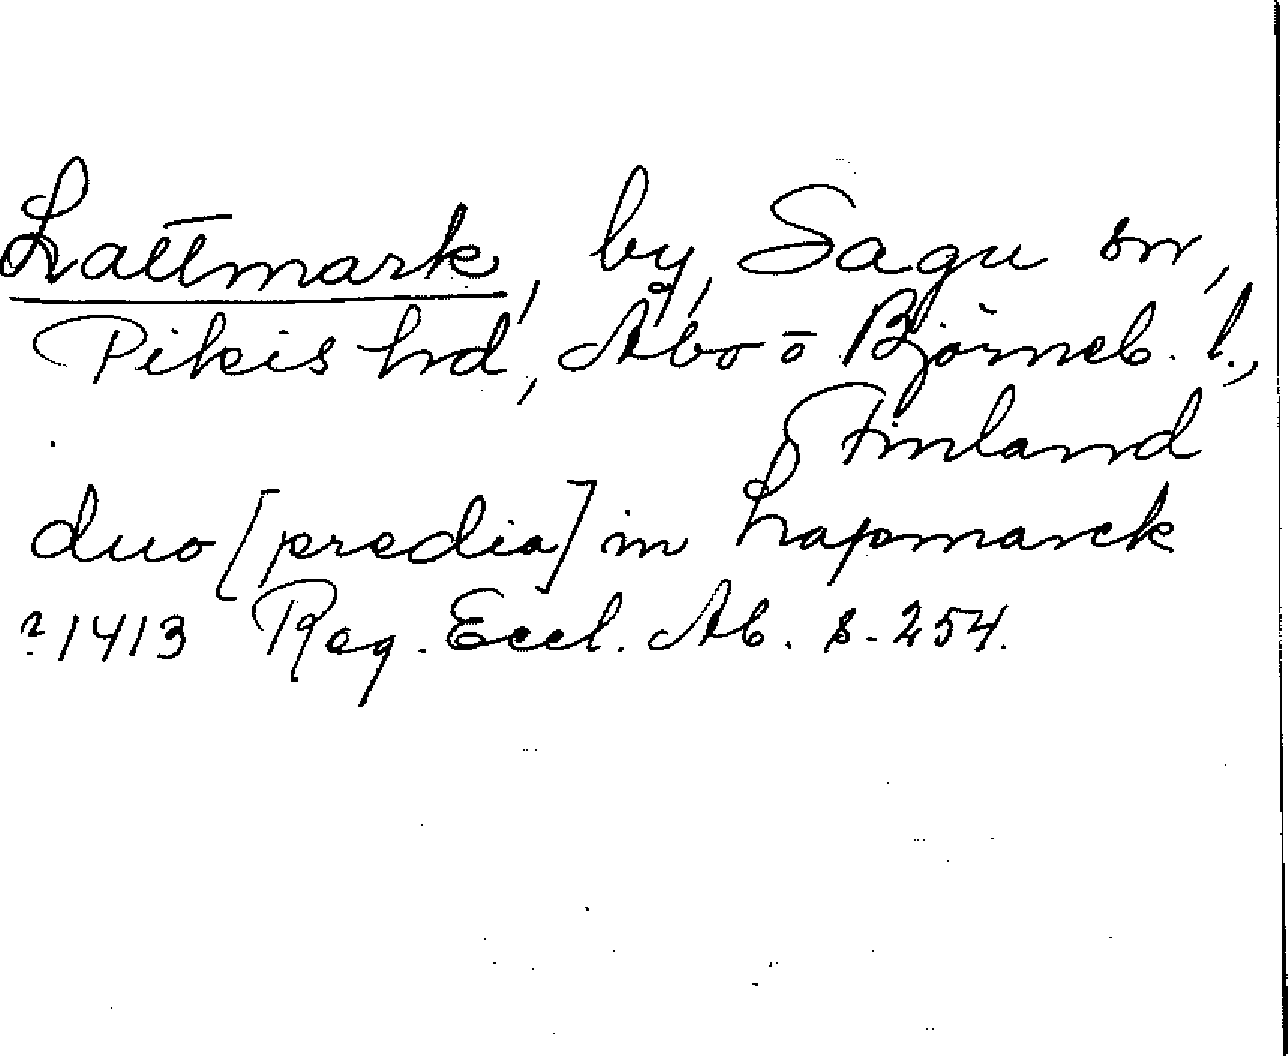 Lattmark, by, Sagu sn,
Pikis hd, Åbo o Björneb. l.,
Finland
duo [predia] in Lapmarck
?1413 Reg. Eccl. Ab. s. 254.